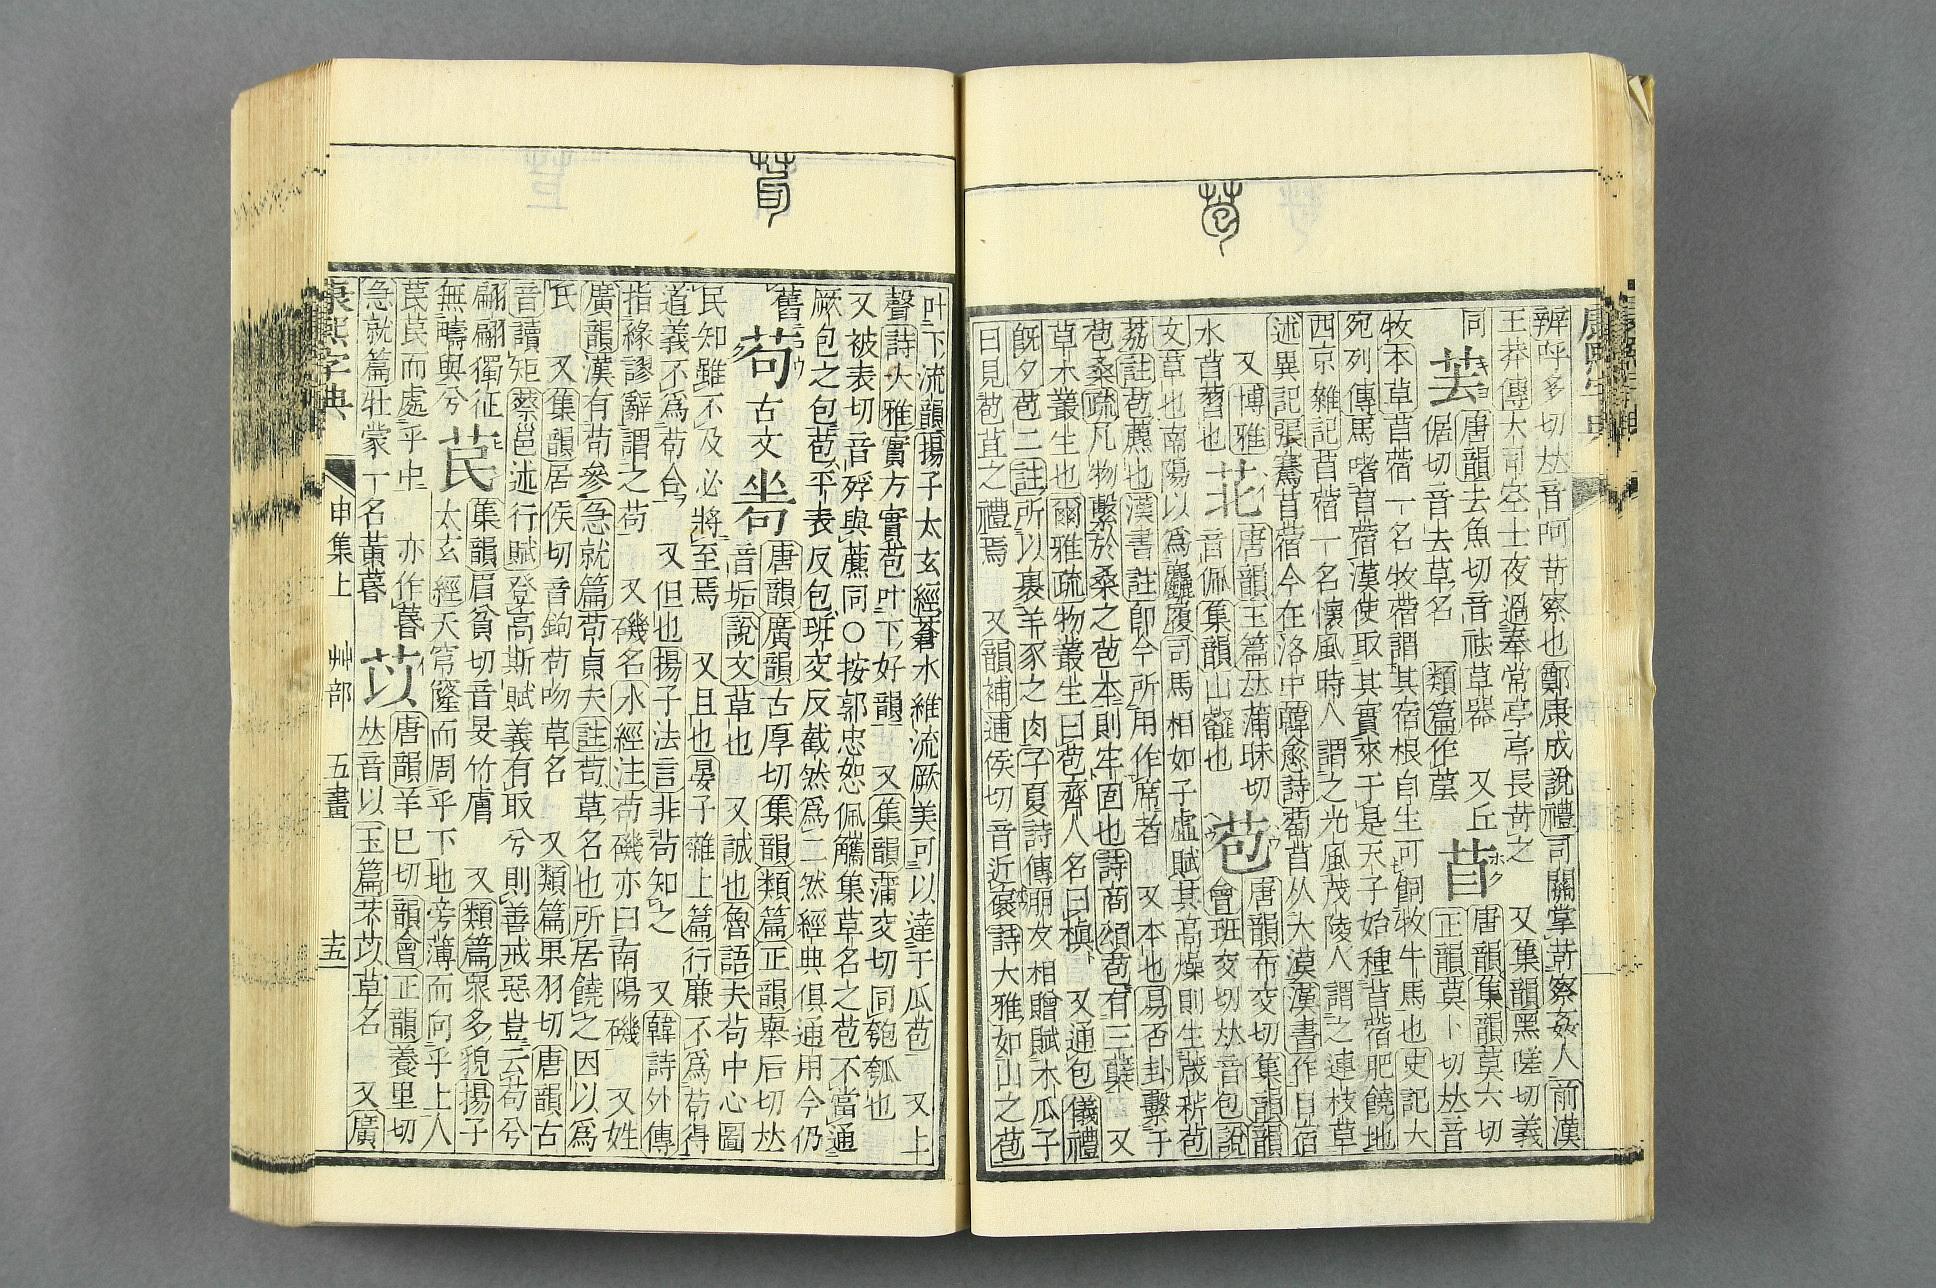 康熙字典
辨呼多切𠀤音阿苛察也鄭康成說禮司關掌苛察姦人前漢
王莽傳大司空士夜過奉常亭亭長苛之 又集韻黑嗟切義
同 唐韻去魚切音祛草器 又丘 苜 唐韻集韻莫六切
倨切音去草名 類篇作 正韻莫卜切𠀤音
牧本草苜蓿一名牧蓿謂其宿根自生可飼牧牛馬也史記大
宛列傳馬嗜苜蓿漢使取其實來于是天子始種苜蓿肥饒地
西京雜記苜蓿一名懷風時人謂之光風茂陵人謂之連枝草
述異記張騫苜蓿今在洛中韓愈詩萄苜从大漠漢書作目宿
又博雅 苝 唐韻玉篇𠀤蒲昧切 苞 唐韻布交切集韻韻
水苜也 音佩集韻山䪥也 會班交切𠀤音包說
文草也南陽以爲麤履司馬相如子虛賦其高燥則生葴菥苞
荔註苞藨也漢書註卽今所用作席者 又本也易否卦繫于
苞桑疏凡物繫於桑之苞本則牢固也詩商頌苞有三櫱 又
草木叢生也爾雅疏物叢生曰苞齊人名曰槙 又通包儀禮
旣夕苞二註所以裹羊豕之肉子夏詩傳朋友相贈賦木瓜子
曰見苞苴之禮焉 又韻補逋侯切音近裒詩大雅如山之苞
叶下流韻揚子太玄經蒼木維流厥美可以達于瓜苞 又上
聲詩大雅實方實苞叶下好韻 又集韻蒲交切同匏瓠也
又被表切音殍與藨同○按郭忠恕佩觿集草名之苞不當通
厥包之包苞平表反包班交反截然爲二然經典俱通用今仍
舊 苟 古文 唐韻廣韻古厚切集韻類篇正韻舉后切𠀤
音垢說文草也 又誠也魯語夫苟中心圖
民知雖不及必將至焉 又且也晏子雜上篇行廉不爲苟得
道義不爲苟合 又但也揚子法言非苟知之 又韓詩外傳
指緣謬辭謂之苟 又磯名水經注苟磯亦曰南陽磯 又姓
廣韻漢有苟參急就篇苟貞夫註苟草名也所居饒之因以爲
氏 又集韻居侯切音鉤苟吻草名 又類篇果羽切唐韻古
音讀矩蔡邕述行賦登高斯賦義有取兮則善戒惡豈云苟兮
翩翩獨征 苠 集韻眉貧切音旻竹膚 又類篇衆多貌揚子
無疇與兮 太玄經天穹窿而周乎下地旁薄而向乎上人
苠苠而處乎中 亦作暮 苡 唐韻羊巳切韻會正韻養里切
急就篇牡蒙一名黃暮 𠀤音以玉篇芣苡草名 又廣
康熙字典 申集上 艸部 五畫 十五